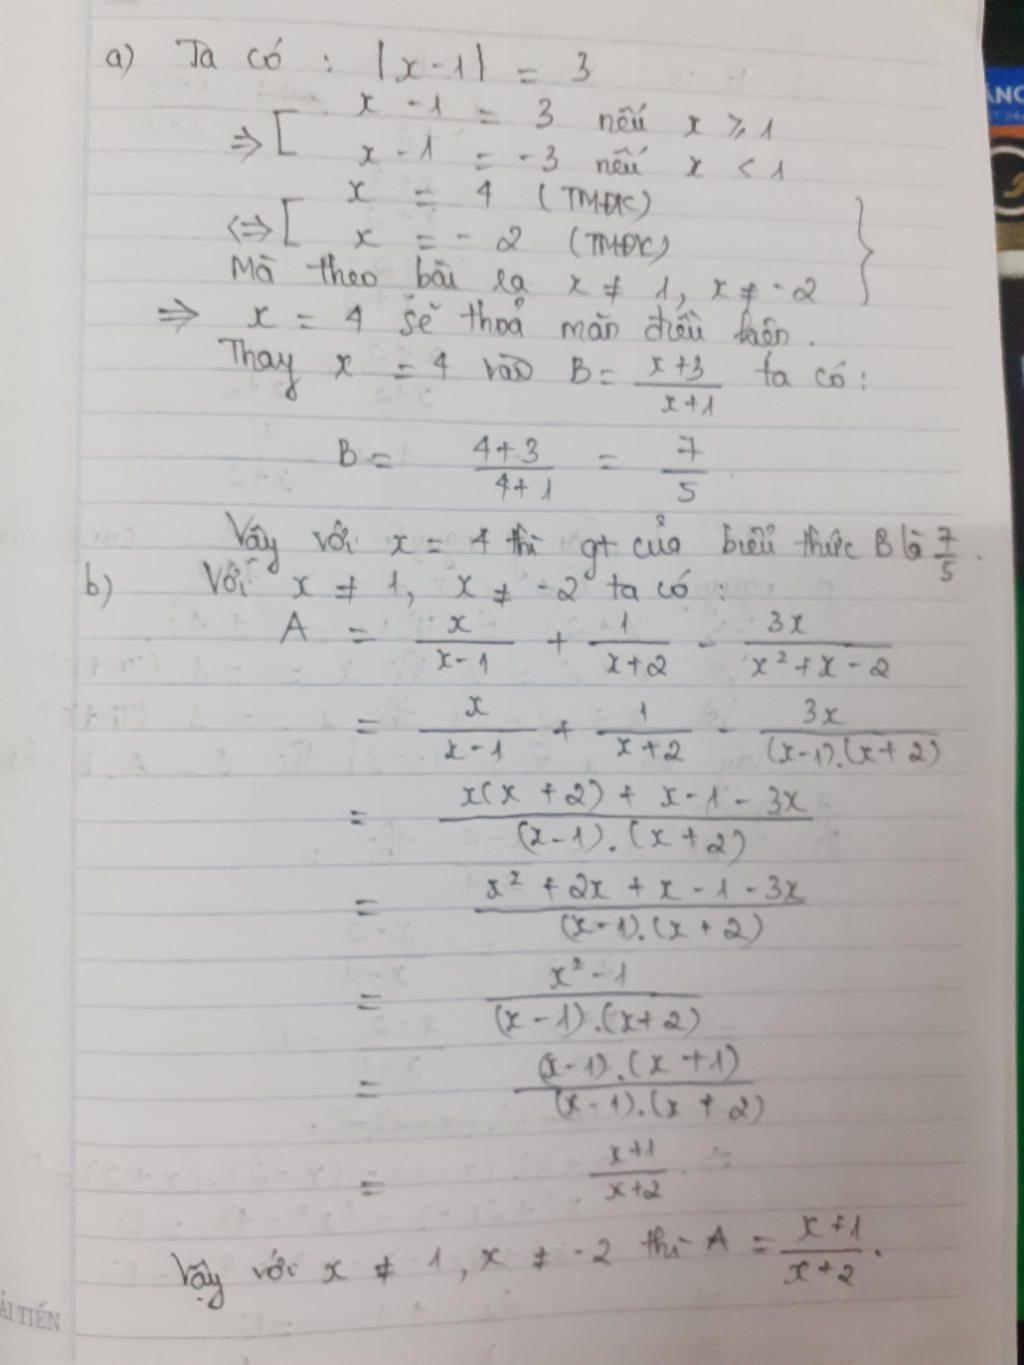 a) Ta có : |x-1| = 3
⇒ [ x - 1 = 3 nếu x ≥ 1
x - 1 = -3 nếu x < 1
⇔ [ x = 4 (TMĐK)
x = - 2 (TMĐK) }
Mà theo bài ra x ≠ 1, x ≠ -2
⇒ x = 4 sẽ thoả mãn điều kiện.
Thay x = 4 vào B = \frac{x+3}{x+1} ta có :
B = \frac{4+3}{4+1} = \frac{7}{5}
Vậy với x = 4 thì gt của biểu thức B là \frac{7}{5}.
b) Với x ≠ 1, x ≠ -2 ta có :
A = \frac{x}{x-1} + \frac{1}{x+2} - \frac{3x}{x² + x - 2}
= \frac{x}{x-1} + \frac{1}{x+2} - \frac{3x}{(x-1).(x+2)}
= \frac{x(x+2) + x-1-3x}{(x-1).(x+2)}
= \frac{x² + 2x + x - 1 - 3x}{(x-1).(x+2)}
= \frac{x² - 1}{(x-1).(x+2)}
= \frac{(x-1).(x+1)}{(x-1).(x+2)}
= \frac{x+1}{x+2}
Vậy với x ≠ 1, x ≠ -2 thì A = \frac{x+1}{x+2}.
ẢI TIẾN